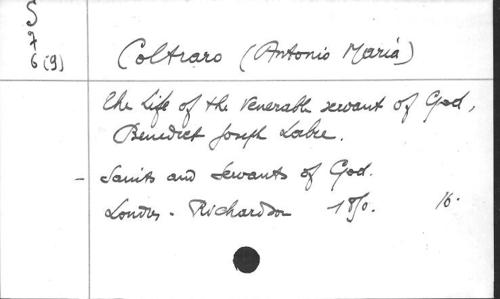 S
7
6(9)
Coltraro (Antonio Maria)
the Life of the Venerable servant of God,
Benedict Joseph Labre.
- Saints and Servants of God.
Londres - Richardson 1850. 16.